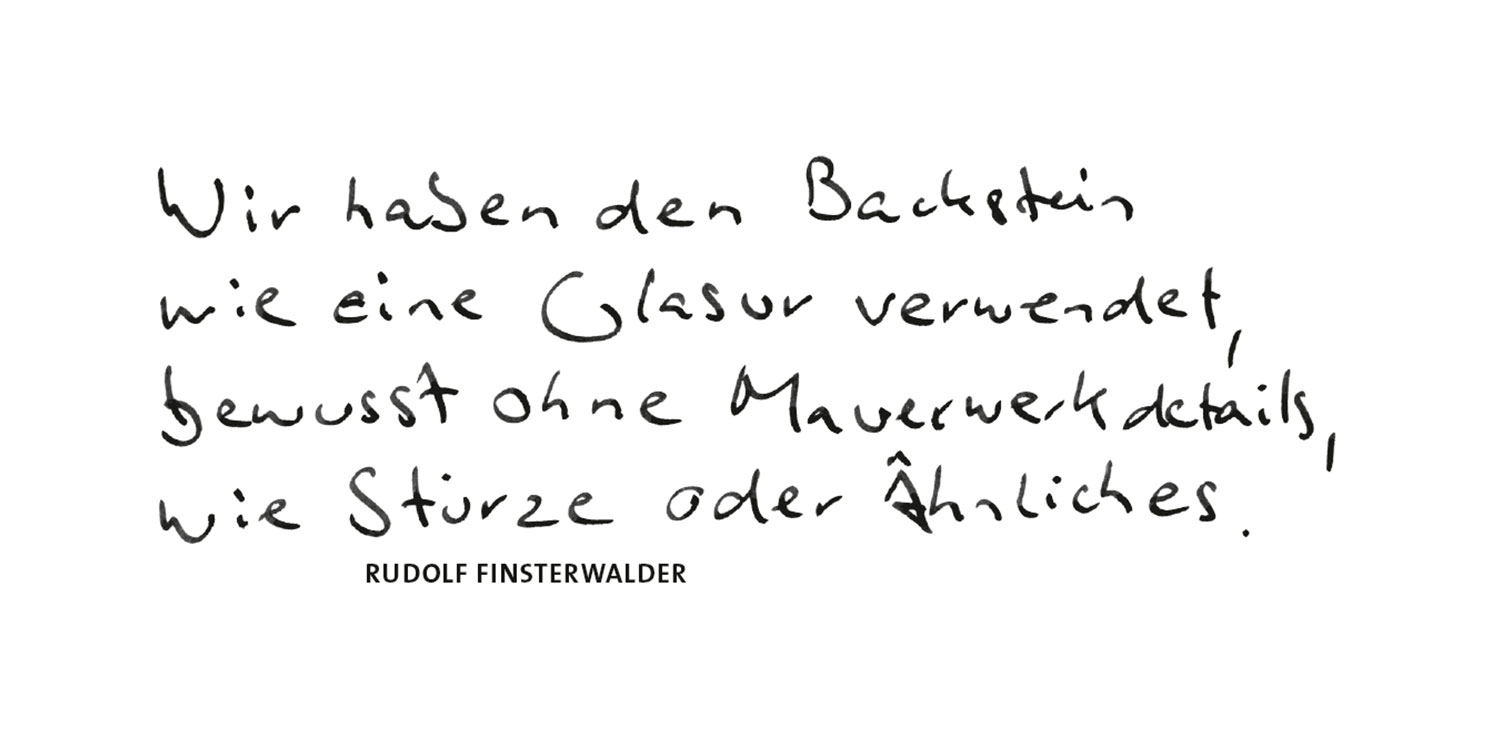 Wir haben den Backstein
wie eine Glasur verwendet,
bewusst ohne Mauerwerkdetails,
wie Stürze oder Ähnliches.
RUDOLF FINSTERWALDER